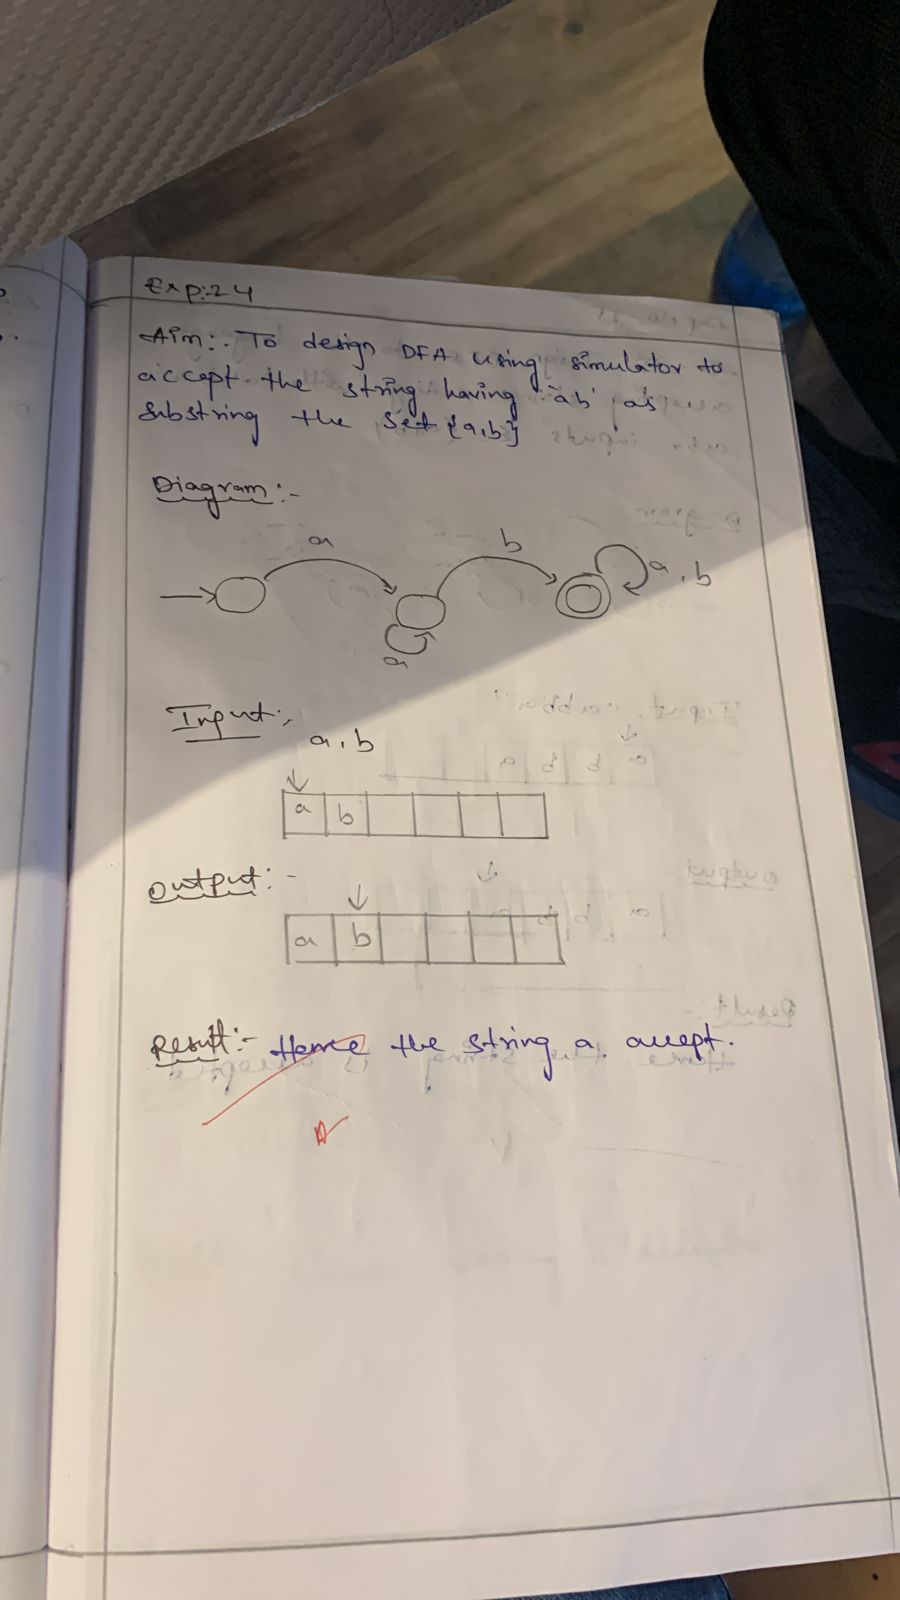 Exp:24
Aim:- To design DFA using simulator to
accept the string having 'ab' as
substring the set {a,b}
Diagram:-
a
b
a, b
a
Input:-
a, b
a b
Output:-
a b
Result:- Hence the string a accept.